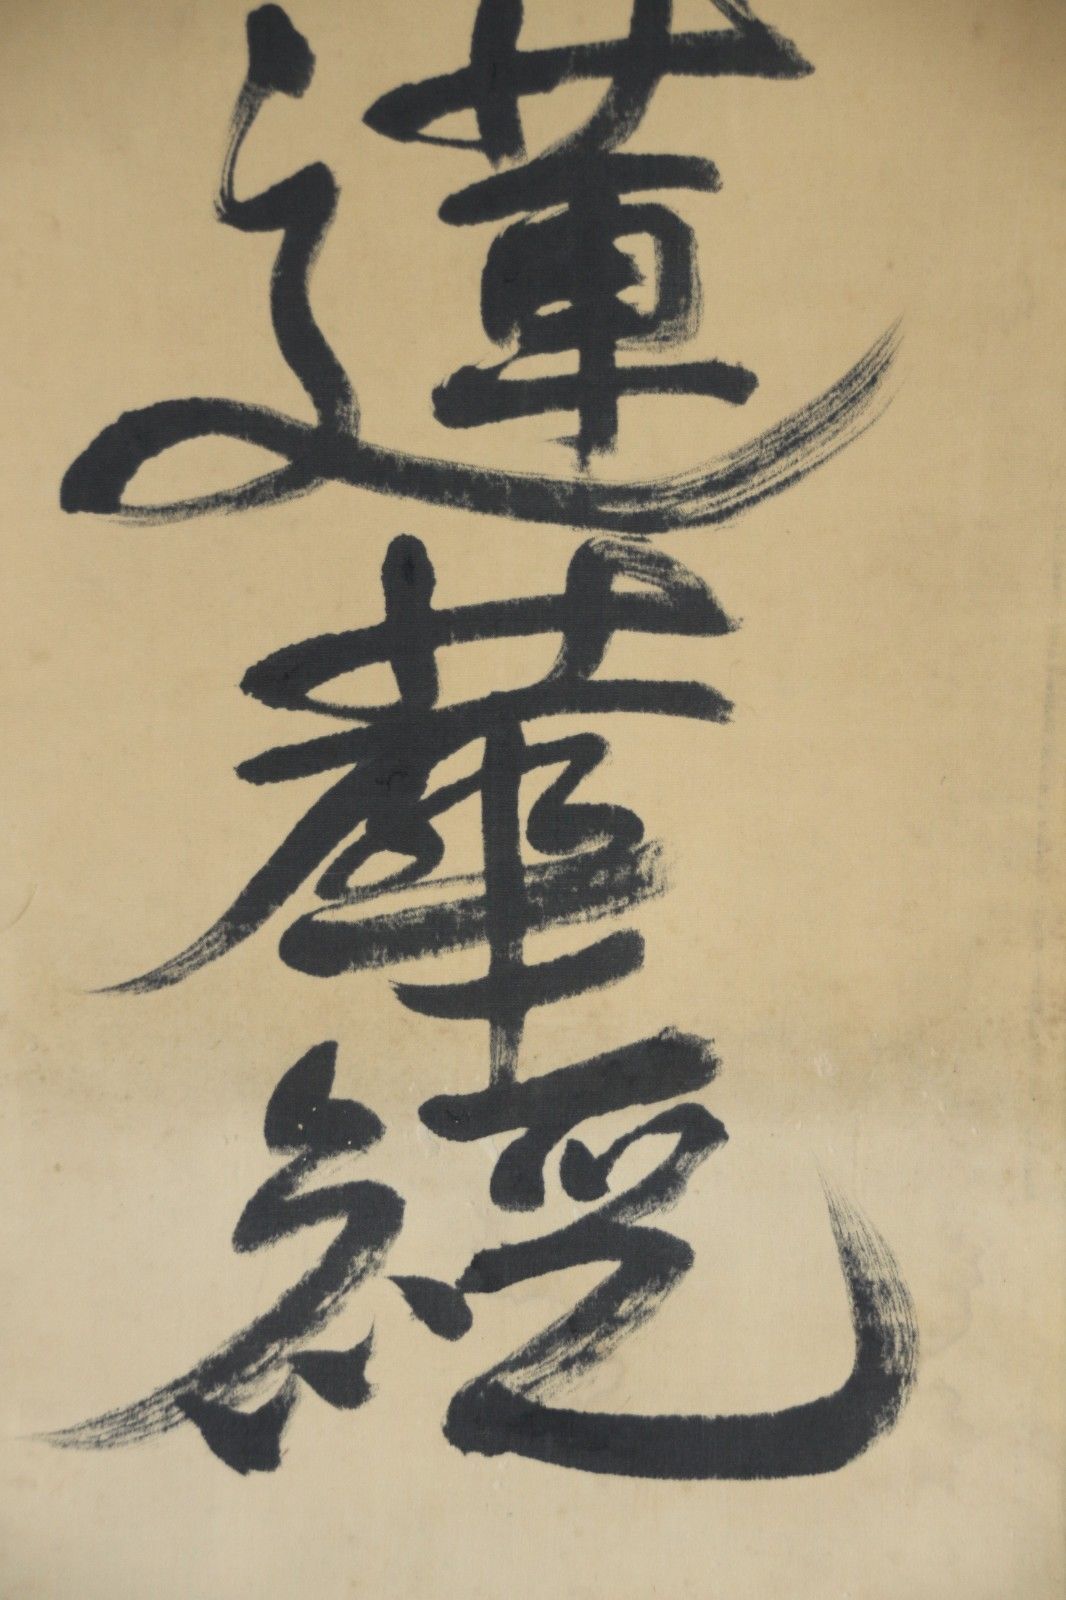 蓮華經